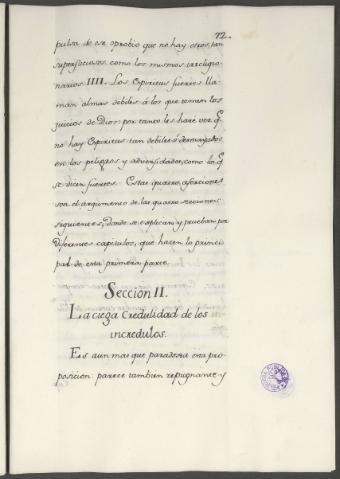 72.
pulsa de ese oprobio que no hay otros tan
supersticiosos como los mismos irreligio-
narios. IIII. Los Espiritus fuertes lla-
man almas debiles á los que temen los
juicios de Dios: por tanto les haré ver q.^e
no hay Espiritus tan debiles ó desmayados
en los peligros y adversidades, como los q.^e
se dicen fuertes. Estas quatro aserciones
son el argumento de las quatro secciones
siguientes, donde se explican y prueban por
diferentes capitulos, que hacen lo princi-
pal de esta primera parte.
Seccion II.
La ciega Credulidad de los
incredulos.
Es aun mas que paradoxa esta pro-
posicion: parece tambien repugnante y